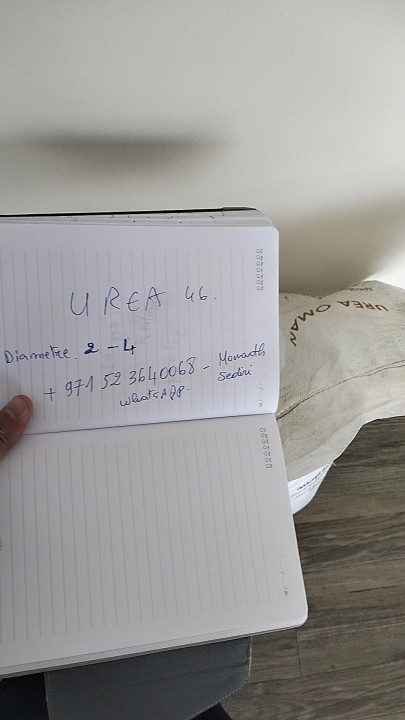 UREA 46.
Diametre. 2 - 4
+ 971 52 3640068 - Monarth
Sediri
whatsApp.
UREA OMAN